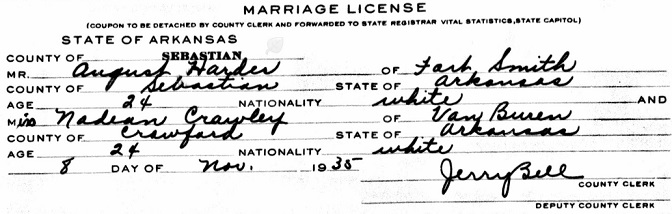 MARRIAGE LICENSE
(COUPON TO BE DETACHED BY COUNTY CLERK AND FORWARDED TO STATE REGISTRAR VITAL STATISTICS, STATE CAPITOL)
STATE OF ARKANSAS
COUNTY OF SEBASTIAN
MR. August Harder OF Fort Smith
COUNTY OF Sebastian STATE OF Arkansas
AGE 24 NATIONALITY white AND
Miss Nadean Crawley OF Van Buren
COUNTY OF Crawford STATE OF Arkansas
AGE 24 NATIONALITY white
8 DAY OF Nov. 1935
Jerry Bell
COUNTY CLERK
DEPUTY COUNTY CLERK